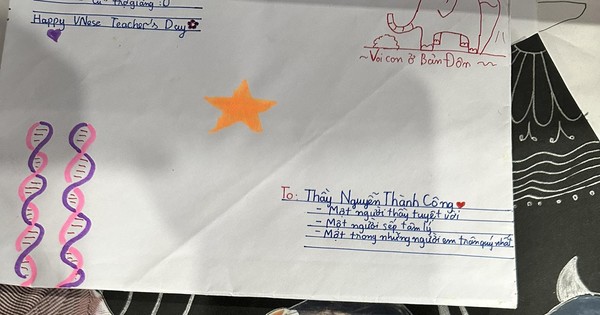 thơ giảng :U
Happy VNese Teacher's Day
~Voi con ở Bản Đôn~
To: Thầy Nguyễn Thành Công
- Một người thầy tuyệt vời
- Một người sếp tâm lý
- Một trong những người em trân quý nhất